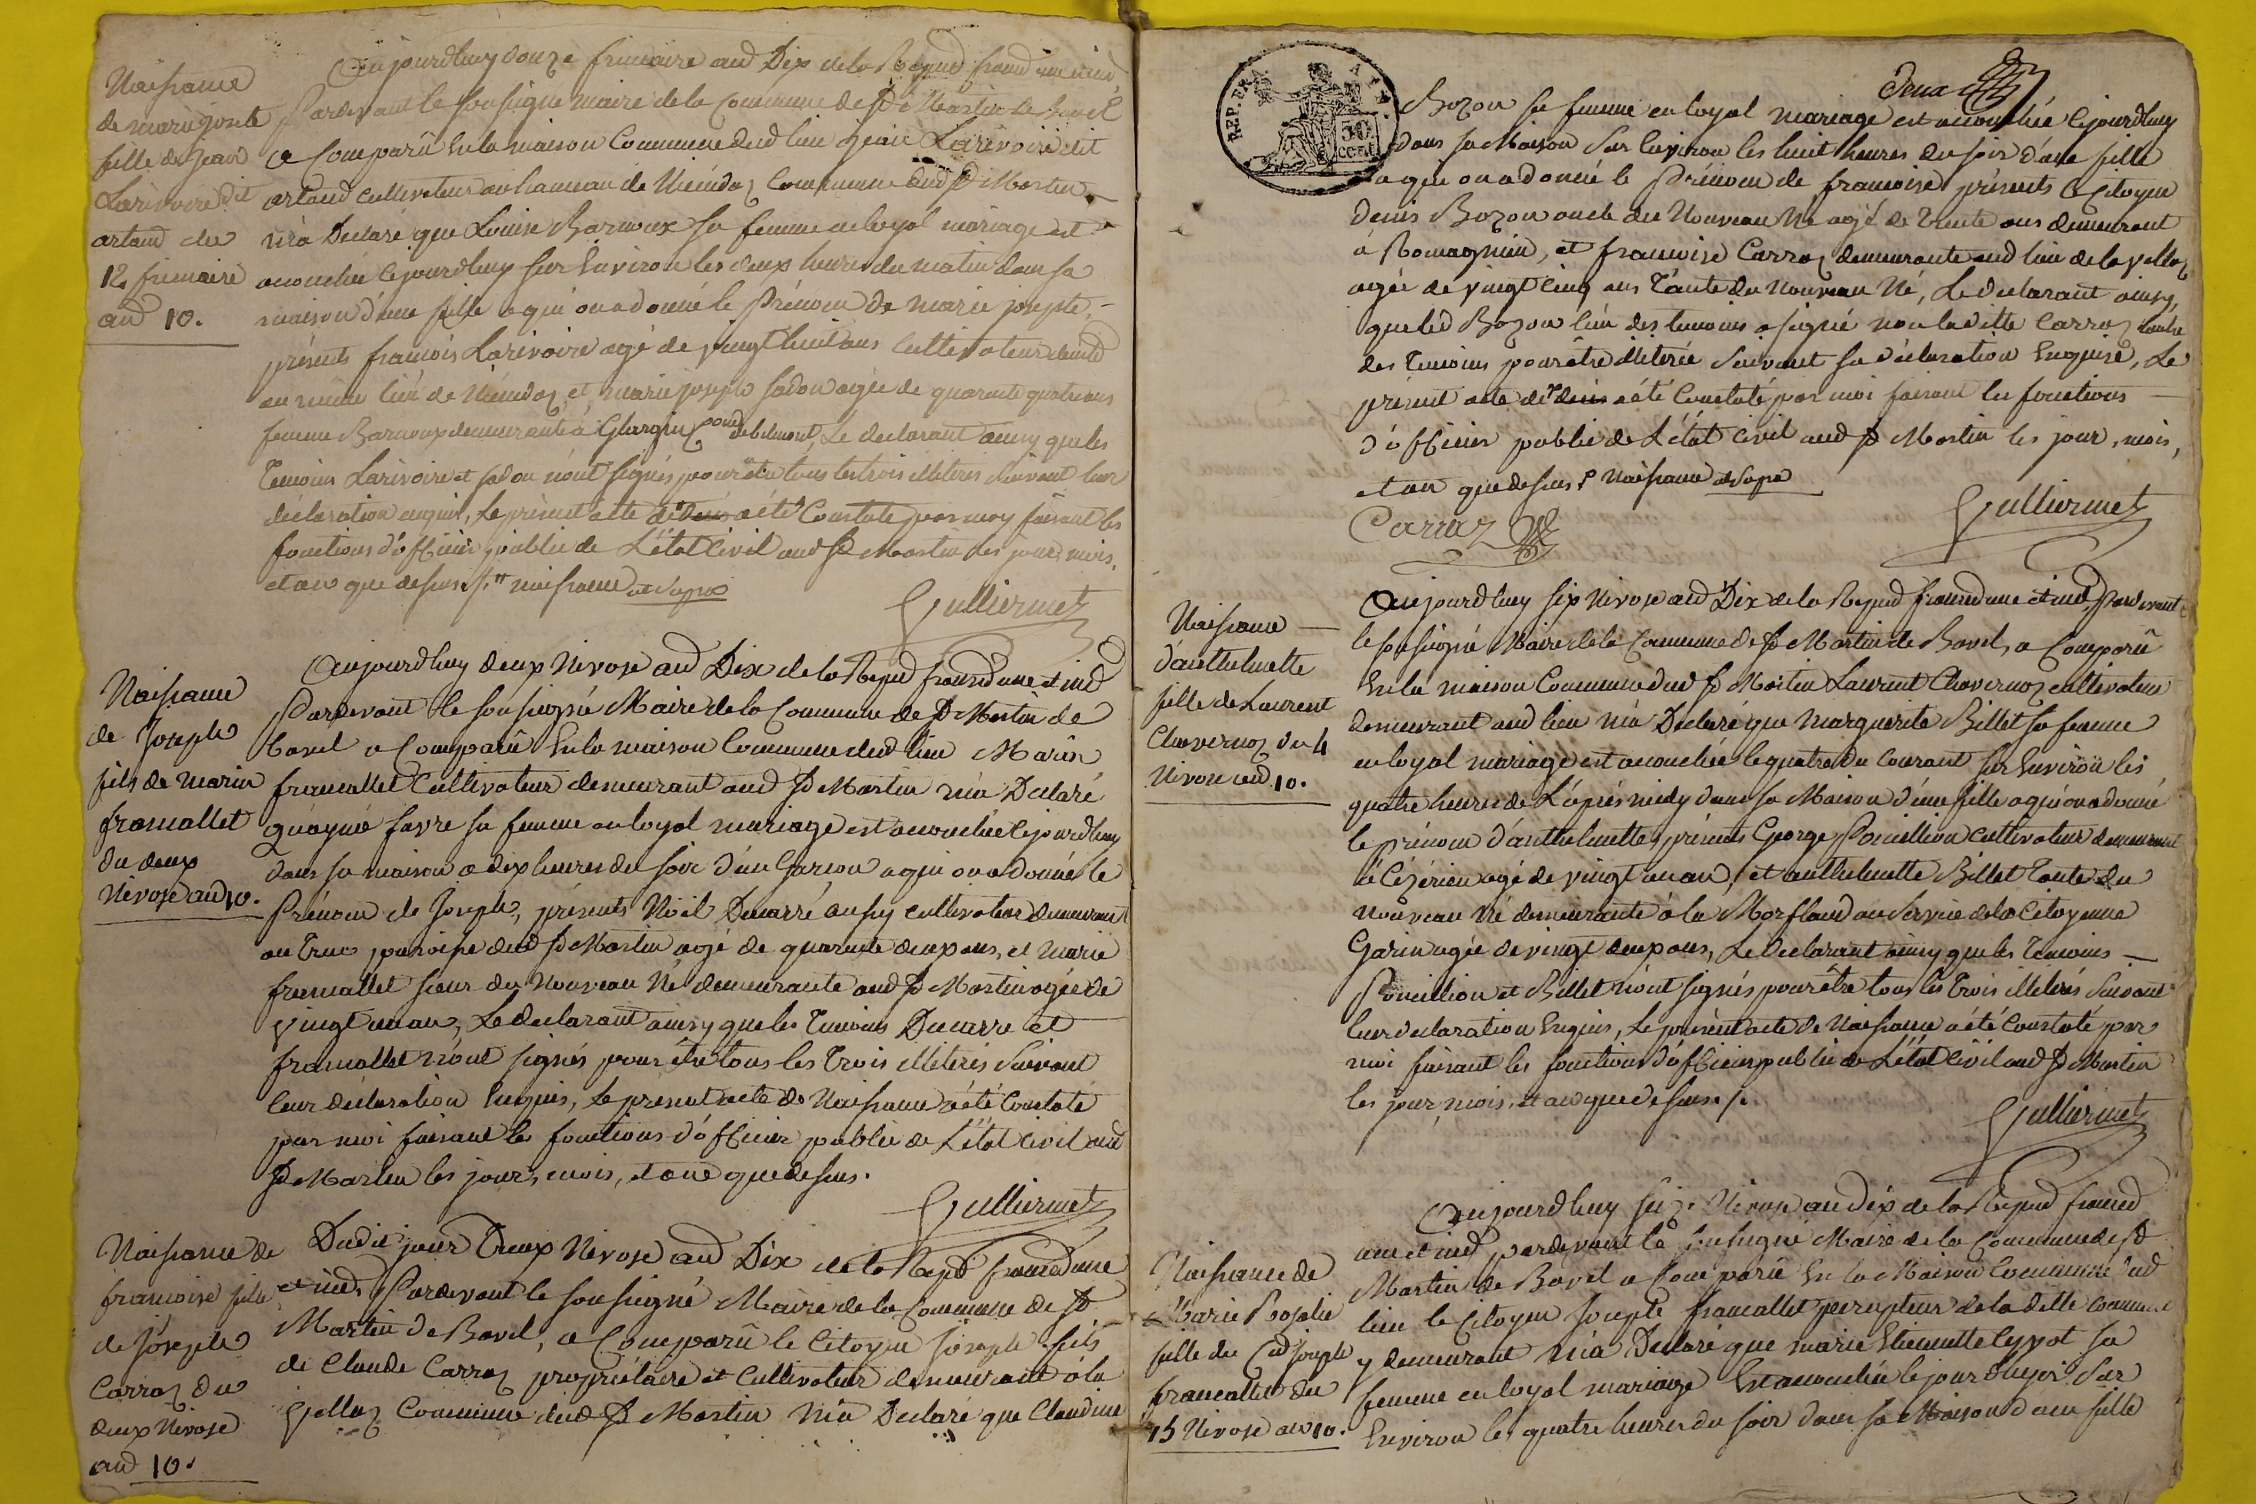 Naissance
de marie josephte
fille de Jean
Larivoire dit
artaud du
12 frimaire
and 10.
Aujourdhuy douze frimaire and Dix de la Repud francd une et ind
Pardevant le soussigné maire de la Commune de St Martin de Bavel
a Comparû En la maison Commune dud lieu Jean Larivoire dit
artaud cultivateur au hameau de Commune dud St Martin
m'a Declaré que Louise Barnoux sa femme en loyal mariage est
acouchée Cejourdhuy sur Environ les deux heures du matin dans sa
maison d'une fille a qui on a donné le Prénom de marie josephte,
présents francois Larivoire agé de vingt huit ans Cultivateur demt
au même lieu de et marie josephe agée de quarante quatre ans
femme Barnoux demeurante à Comne de belmont, Le declarant ainsy que les
Temoins Larivoire et n'ont signés pour être tous les trois illiterés suivant leur
déclaration enquis, Le présent acte de " a été Constaté par moy faisant les
fonctions d'officier public de L'état Civil aud St Martin les jour, mois,
et an que dessus ./. " naissance
Gulliermet
Naissance
de Joseph
fils de Marin
framallet
du deux
Nivose and 10.
Aujourdhuy deux Nivose and Dix de la Repud francd une et ind
Pardevant le soussigné Maire de la Commune de St Martin de
bavel a Comparû En la maison Commune dud lieu Marin
framallet Cultivateur demeurant aud St Martin m'a Declaré
qu'aymé favre sa femme en loyal mariage est acouchée Cejourdhuy
dans sa maison a dix heures du soir d'un Garson a qui on a donné le
Prénom de Joseph, présents Noël Ducarré aussy cultivateur demeurant
au Truc paroisse dud St Martin agé de quarante deux ans, et Marie
framallet sœur du Nouveau Né demeurante aud St Martin agée de
vingt un an, Le declarant ainsy que les Temoins Ducarre et
framallet n'ont signés pour être tous les Trois illiterés Suivant
leur déclaration Enquis, Le présent acte de Naissance a été Constaté
par moi faisant les fonctions d'officier public de L'état Civil aud
St Martin les jour, mois, et and que dessus.
Gulliermet
Naissance de
francoise fille
de Joseph
Carraz du
deux Nivose
and 10.
Dudit jour Deux Nivose and Dix de la Repd francd une
et ind, Pardevant le soussigné Maire de la Commune de St
Martin de Bavel, a Comparû le Citoyen Joseph fils
de Claude Carraz propriétaire et Cultivateur demeurant à la
Vellaz Commune dud St Martin m'a Declaré que Claudine
Deux
REP. FRA
50
CENT
Bozon sa femme en loyal mariage est acouchée Cejourdhuy
dans sa Maison sur Environ les huit heures du soir d'une fille
a qui on a donné le Prénom de francoise, présents le Citoyen
Denis Bozon oncle du Nouveau Né agé de Trente ans demeurant
à Romagnieu, et francoise Carraz demeurante aud lieu de la Vellaz
agée de vingt cinq ans Tante du Nouveau Né, Le declarant ainsy
que led Bozon l'un des temoins a signé non la ditte Carraz
des Temoins pour être illiterée Suivant sa déclaration Enquise, Le
présent acte de a été Constaté par moi faisant les fonctions
d'officier public de L'état Civil aud St Martin les jour, mois,
et an que dessus ." Naissance
Carraz
Gulliermet
Naissance
d'anthelmette
fille de Laurent
Chavernoz du 4
Nivose and 10.
Aujourdhuy six Nivose and Dix de la Repud francd une et ind, Pardevant
le soussigné Maire de la Commune de St Martin de Bavel, a Comparû
En la maison Commune dud St Martin Laurent Chavernoz cultivateur
demeurant aud lieu m'a Declaré que Marguerite Billet sa femme
en loyal mariage est acouchée le quatre du Courant sur Environ les
quatre heures de L'après midy dans sa Maison d'une fille a qui on a donné
le prénom d'anthelmette, présents George Poncillion cultivateur demeurant
à Cézérieu agé de vingt un an, et anthelmette Billet Tante du
nouveau Né demeurante à la Morflaud au Service de la Citoyenne
Garin agée de vingt deux ans, Le Declarant ainsy que les Temoins
Poncillion et Billet n'ont signés pour être tous les Trois illiterés Suivant
leur declaration Enquis, Le présent acte de Naissance a été Constaté par
moi faisant les fonctions d'officier public de L'état Civil aud St Martin
les jour, mois, et an que dessus ./.
Gulliermet
Naissance de
Marie Rosalie
fille du Cid Joseph
francallet du
15 Nivose an 10.
Aujourdhuy seize Nivose an dix de la Repud francd
une et ind pardevant le soussigné Maire de la Commune de St
Martin de Bavel a Comparû En la Maison Commune dud
lieu le Citoyen Joseph framallet percepteur de la ditte commune
y demeurant m'a Declaré que marie Etiennette sa
femme en loyal mariage Est acouchée le jour d'hyer Sur
Environ les quatre heures du soir dans sa Maison d'une fille